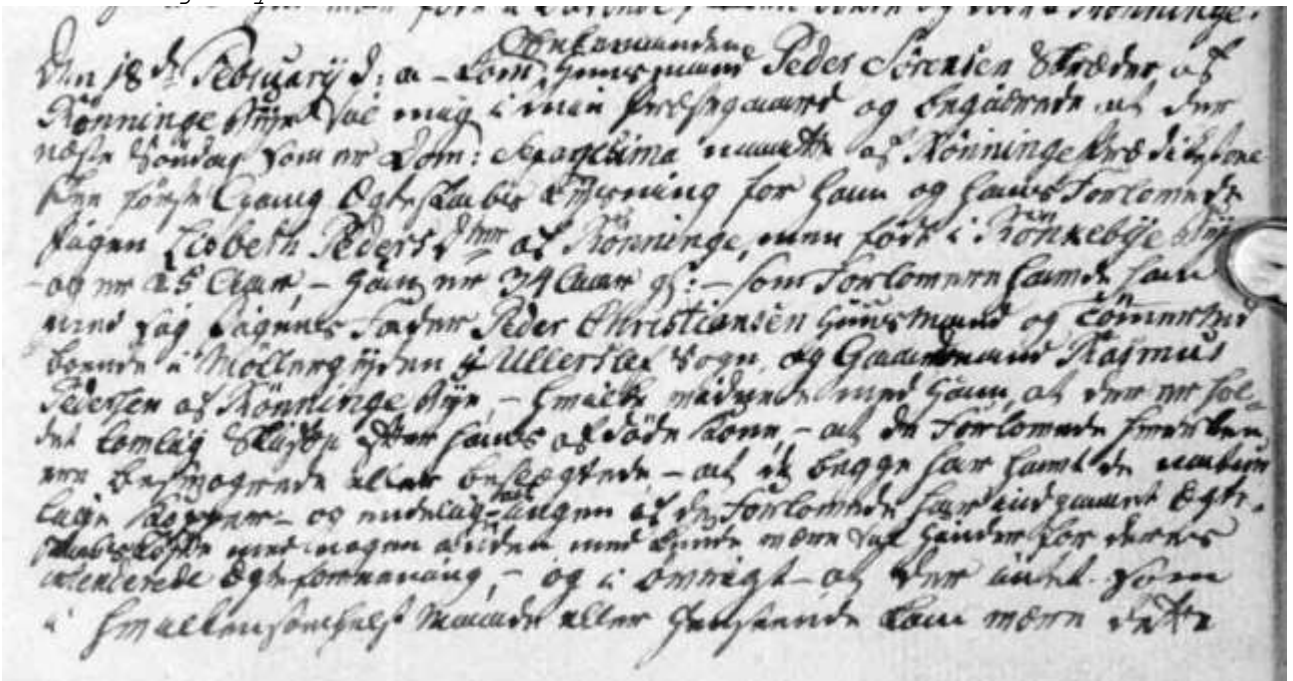 Den 18de Februarij d: a – kom Enkemanden Huusmand Peder Sörensen Skræder af
Rönninge Bÿe til mig i min Præstegaard og begiærede at der
næste Söndag som er Dom: Sexagesima maatte af Rönninge Prædikestoel
skee förste Gang Ægteskabs Lÿsning for ham og hans Forlovede
Pigen Lisbeth Peders Dtter af Rönninge, men föd i Rönkebÿe
og er 25 Aar, – han er 34 Aar gl: – som Forlovere havde han
med sig Pigens Fader Peder Christiansen Huusmand og Tömermand
boende i Möllergÿden i Ullerslev Sogn, og Gaardmand Rasmus
Pedersen af Rönninge Bÿe, – hvilke vidnede med ham, at der er hol-
det lovlig Skifte efter hans afdöde Kone, – at de Forlovede hverken
ere besvogrede eller beslægtede – at de begge har havt de naturlige
Kopper – og endelig at ingen af de Forlovede har indgaaet Ægte-
skabslöfte med nogen anden som kunde være til Hinder for deres
intenderede Ægteforeening, – og i övrigt – at der intet som
i hvilkensomhelst Maade eller Henseende kan være dette